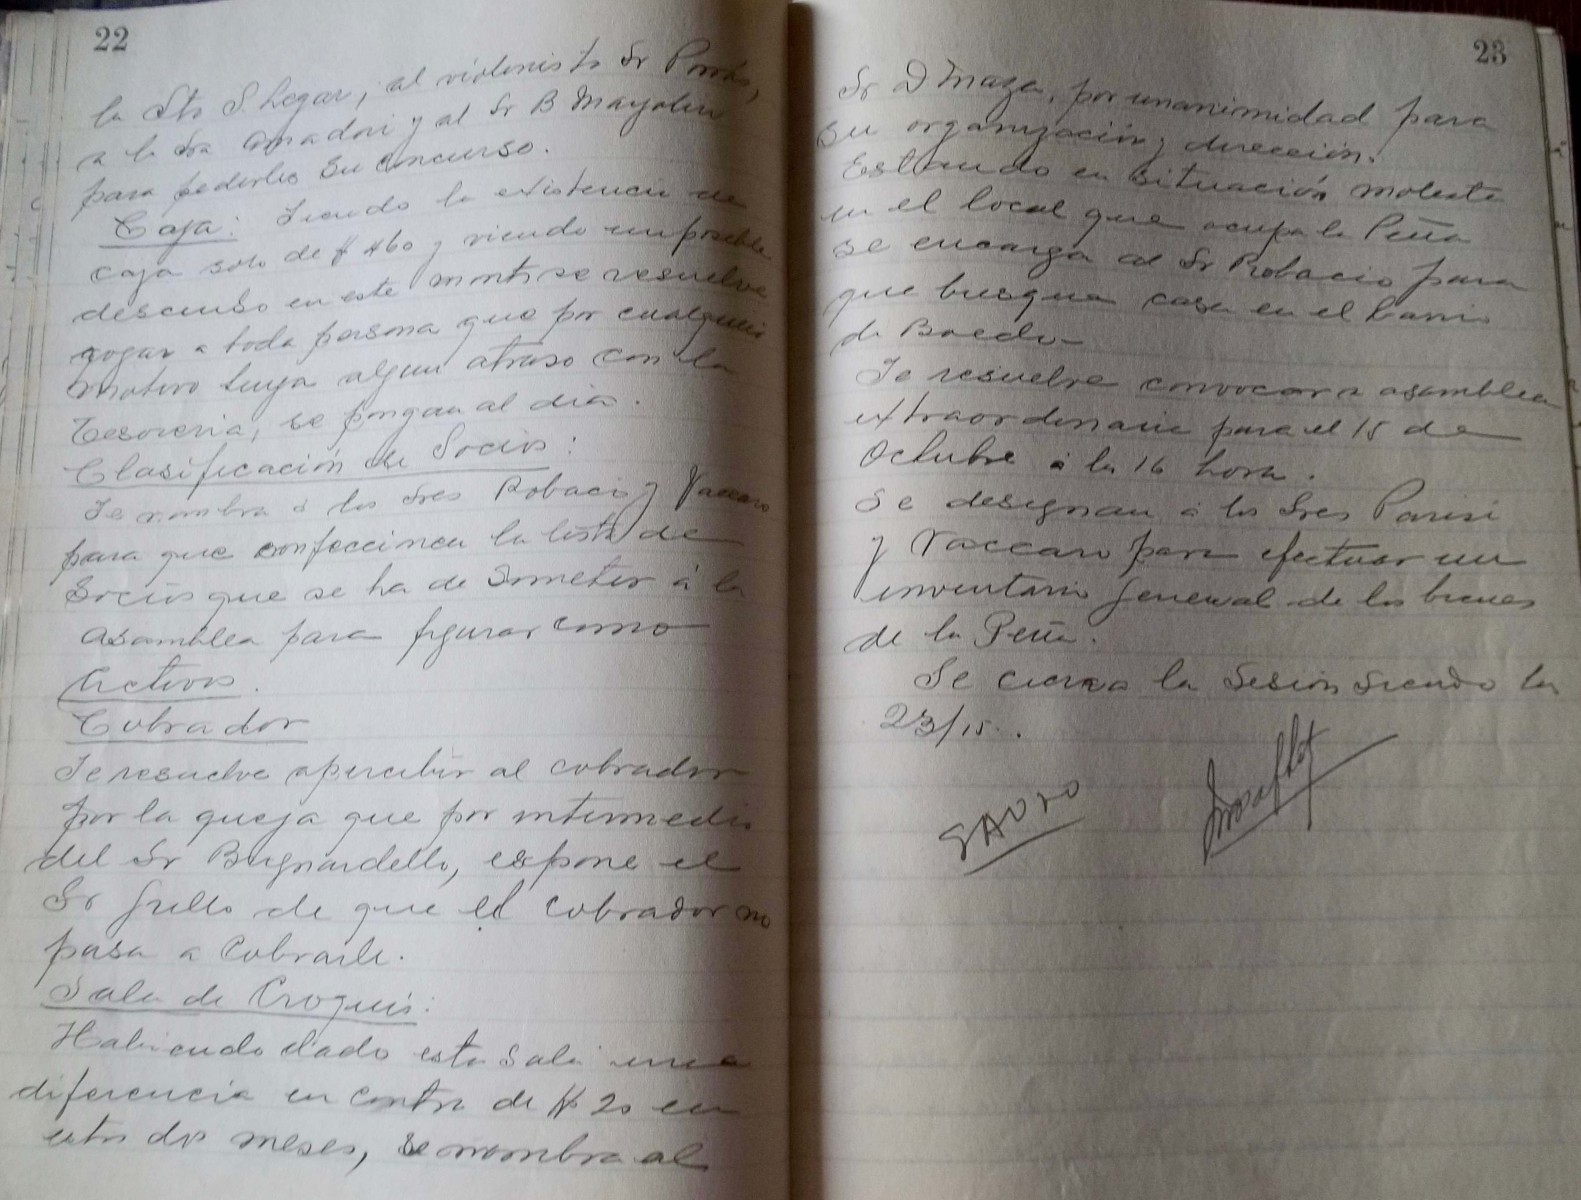 22
la Sta S. Legar, al violinista Sr
a la Sra Amadori y al Sr B Mayolin
para pedirles su concurso.
Caja: Siendo la existencia de
caja solo de $ 460 y viendo imposible
descenso en este monto se resuelve
rogar a toda persona que por cualquier
motivo tenga algun atraso con la
Tesoreria, se pongan al dia.
Clasificación de Socios:
Se nombra á los Sres Robacio y Vaccaro
para que confeccionen la lista de
Socios que se ha de Someter á la
asamblea para figurar como
Activos.
Cobrador
Se resuelve apercibir al cobrador
por la queja que por intermedio
del Sr Bugnardello, expone el
Sr Grillo de que el cobrador no
pasa a Cobrarle.
Sala de Croquis:
Habiendo dado esta sala una
diferencia en contra de $ 20 en
estos dos meses, se nombra al
23
Sr D Maza, por unanimidad para
su organización y dirección.
Estando en situación molesta
en el local que ocupa la Peña
se encarga al Sr Robacio para
que busque casa en el barrio
de Boedo-
Se resuelve convocar a asamblea
extraordinaria para el 15 de
Octubre á la 16 hora.
Se designan á los Sres Parisi
y Vaccaro para efectuar un
inventario general de los bienes
de la Peña.
Se cierra la Sesión Siendo las
23/15.